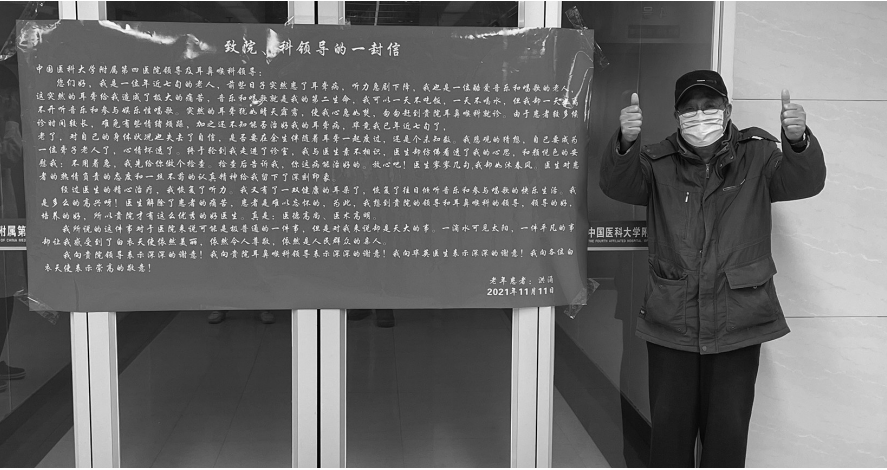 致院、科领导的一封信
中国医科大学附属第四医院领导及耳鼻喉科领导：
您们好，我是一位年近七旬的老人，前些日子突然患了耳聋病，听力急剧下降，我也是一位酷爱音乐和唱歌的老人，
这突然的耳聋给我造成了极大的痛苦，音乐和唱歌就是我的第二生命，我可以一天不吃饭，一天不喝水，但我却一天也离
不开听音乐和参与娱乐性唱歌。突然的耳聋犹如晴天霹雳，使我心急如焚，匆匆赶到贵院耳鼻喉科就诊。由于患者较多候
诊时间较长，难免有些情绪烦躁，加之还不知能否治好我的耳聋病，毕竟我已年近七旬了，
老了，对自己的身体状况也失去了自信，是否要在余生伴随着耳聋一起度过，还是个未知数。我悲观的猜想，自己要成为
一位聋子老人了，心情坏透了。终于轮到我走进了诊室，我与医生素不相识，医生却仿佛看透了我的心思，和颜悦色的安
慰我：不用着急，我先给你做个检查。检查后告诉我，你这病能治好的。放心吧！医生寥寥几句，我却如沐春风。医生对患
者的热情负责的态度和一丝不苟的认真精神给我留下了深刻印象。
经过医生的精心治疗，我恢复了听力。我又有了一双健康的耳朵了，恢复了往日倾听音乐和参与唱歌的快乐生活。我
是多么的高兴啊！医生解除了患者的痛苦，患者是难以忘怀的，为此，我想到贵院的领导和耳鼻喉科的领导，领导的好，
培养的好，所以贵院才有这么优秀的好医生。真是：医德高尚、医术高明。
我所说的这件事对于医院来说可能是极普通的一件事，但是对我来说却是天大的事。一滴水可见太阳，一件平凡的事
却让我感受到了白衣天使依然美丽，依然令人尊敬，依然是人民群众的亲人。
我向贵院领导表示深深的谢意！我向贵院耳鼻喉科领导表示深深的谢意！我向毕英医生表示深深的谢意！我向各位白
衣天使表示崇高的敬意！
老年患者：洪涌
2021年11月11日
附属第
中国医科大学附
THE FOURTH AFFILIATED HOSPITAL